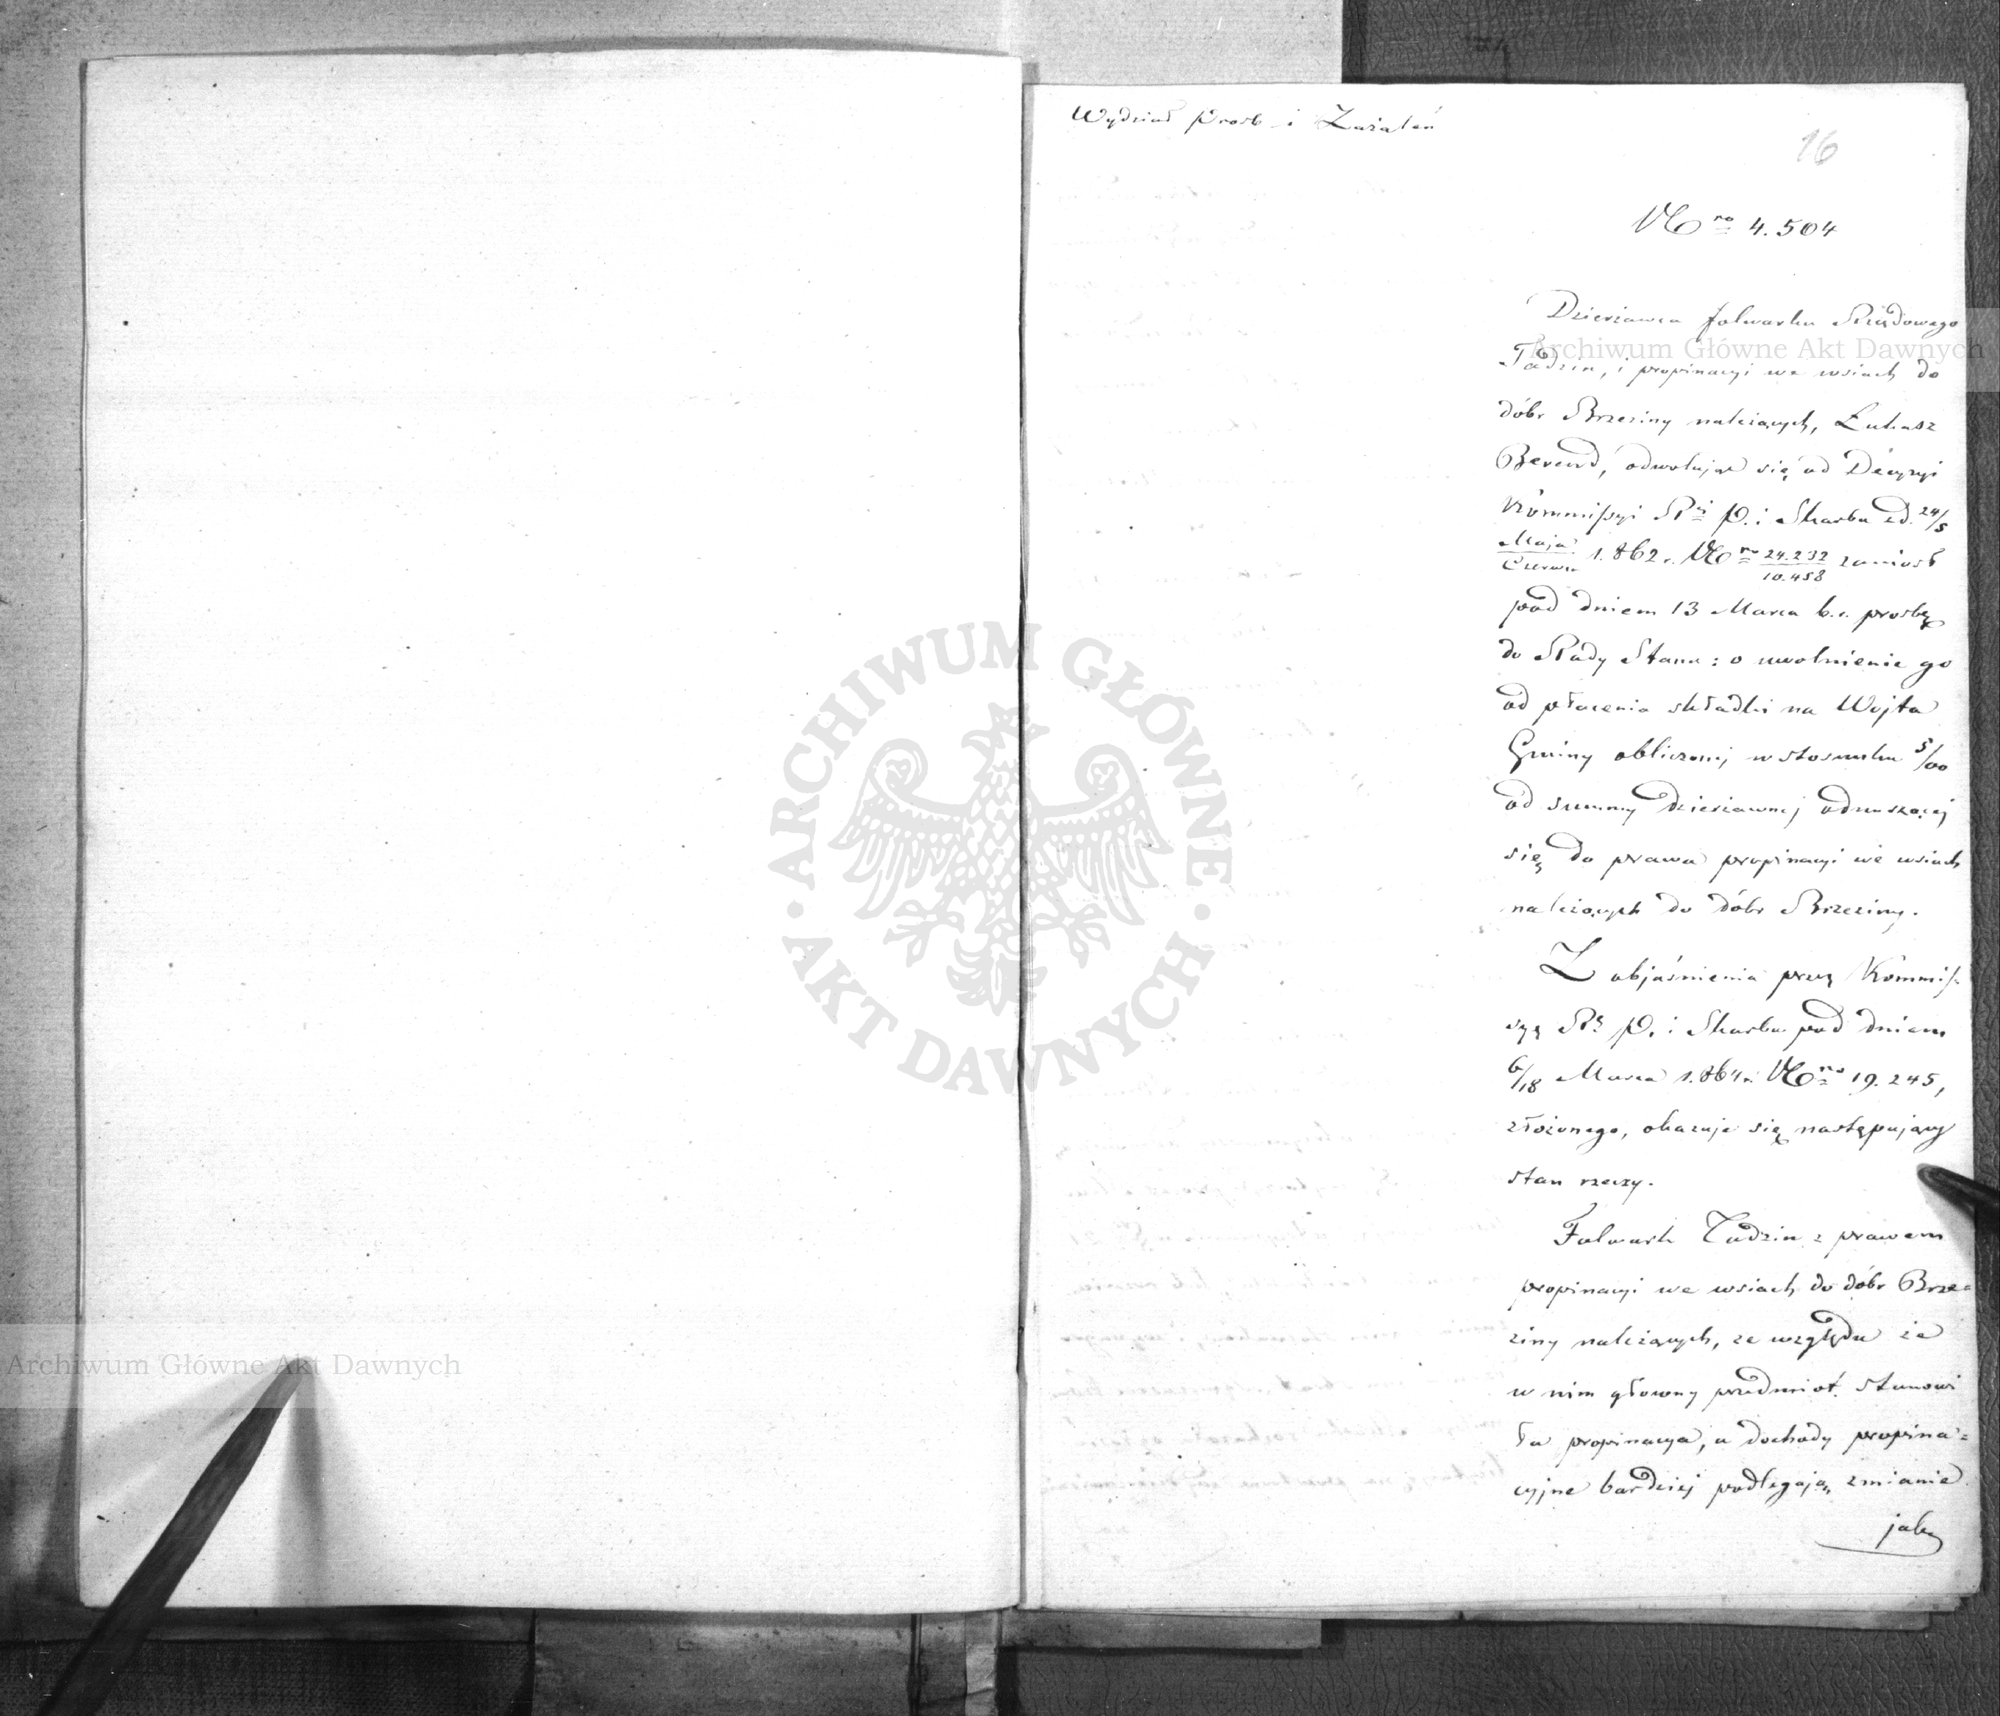 Wydział Prośb i Zażaleń
16
Nro 4.504
Dzierżawca folwarku Rządowego
Tadzin, i propinacyi we wsiach do
dóbr Brzeziny należących, Łukasz
Berend, odwołując się od Decyzyi
Kommissyi R.i P. i Skarbu z d. 24/5
Maja/Czerwca 1.862 r. Nro 24.232/10.458 zaniosł
pod dniem 13 Marca b.r. prosbę
do Rady Stanu: o uwolnienie go
od płacenia składki na Wojta
Gminy obliczonej w stosunku 5/00
od summy dzierżawnej odnoszącej
się do prawa propinacyi we wsiach
należących do dóbr Brzeziny.
Z objaśnienia przez Kommis-
syę R. P. i Skarbu pod dniem
6/18 Marca 1.864 r. Nro 19.245,
złożonego, okazuje się następujący
stan rzeczy.
Folwark Tadzin z prawem
propinacyi we wsiach do dóbr Brze=
ziny należących, ze względu że
w nim głowny przedmiot stanowi
ła propinacya, a dochody propina=
cyjne bardziej podlegają zmianie
jak
Archiwum Główne Akt Dawnych
ARCHIWUM GŁÓWNE
AKT DAWNYCH
Archiwum Główne Akt Dawnych